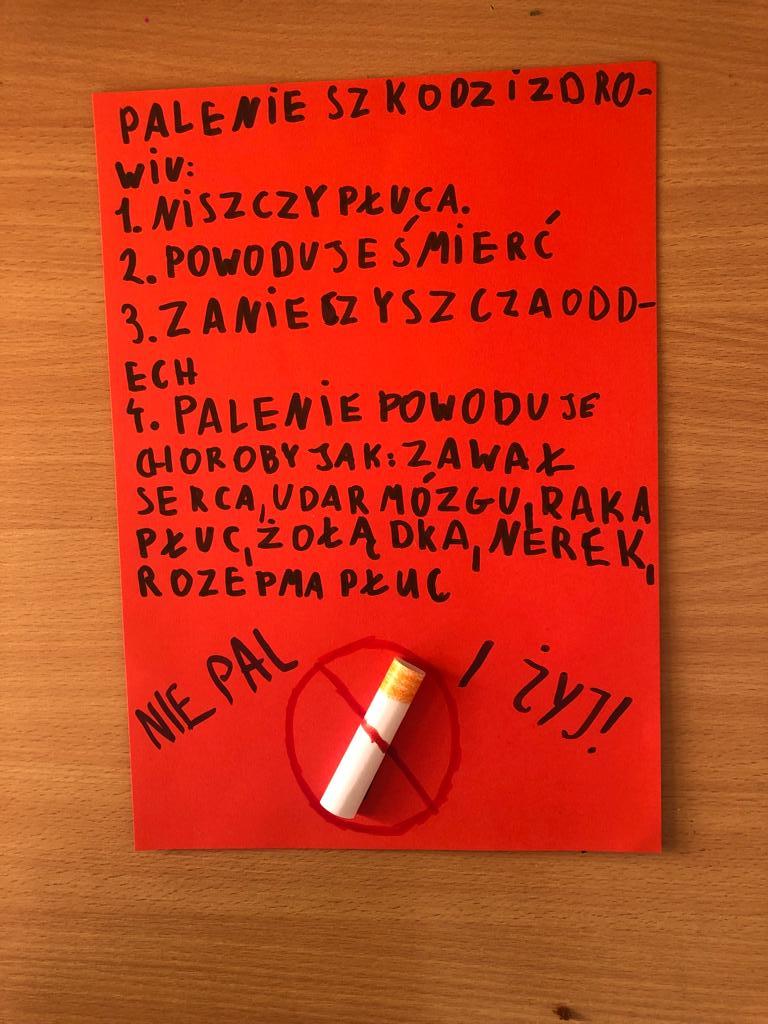 PALENIE SZKODZI ZDRO-
WIU:
1. NISZCZY PŁUCA.
2. POWODUJE ŚMIERĆ
3. ZANIECZYSZCZA ODD-
ECH
4. PALENIE POWODUJE
CHOROBY JAK: ZAWAŁ
SERCA, UDAR MÓZGU, RAKA
PŁUC, ŻOŁĄDKA, NEREK,
ROZEPMA PŁUC
NIE PAL I ŻYJ!